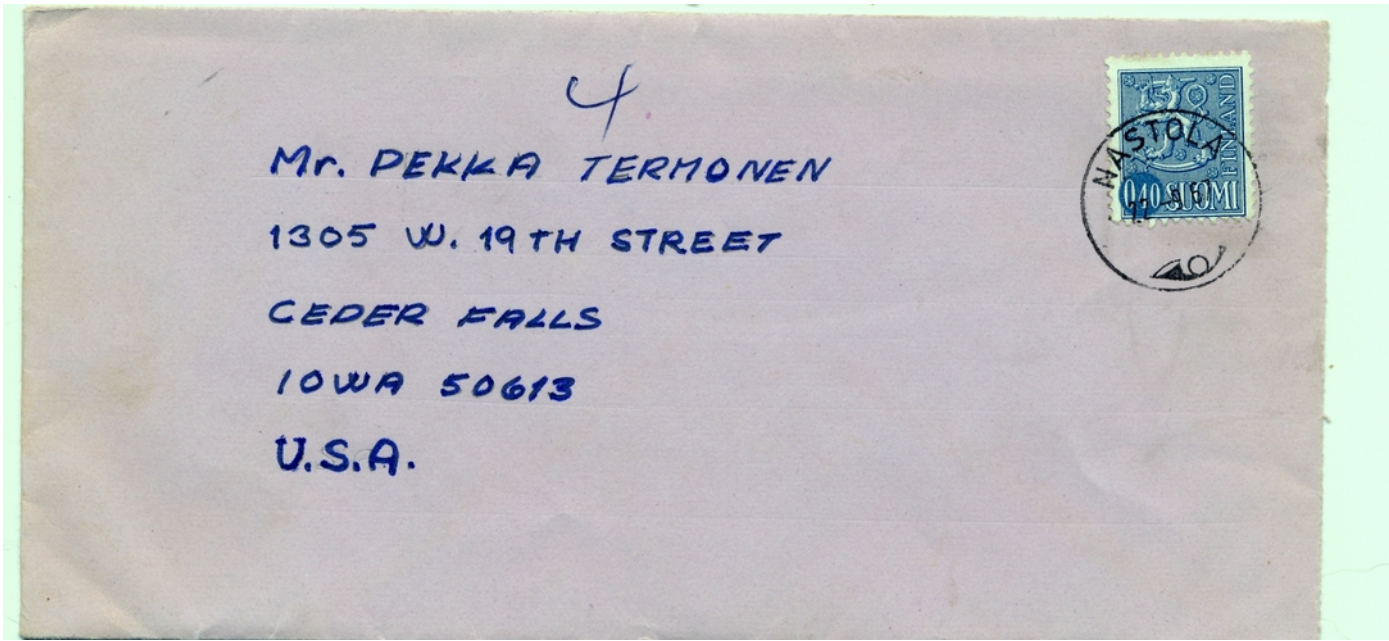 4
Mr. PEKKA TERMONEN
1305 W. 19TH STREET
CEDER FALLS
IOWA 50613
U.S.A.
FINLAND
NASTOLA
0,40 SUOMI